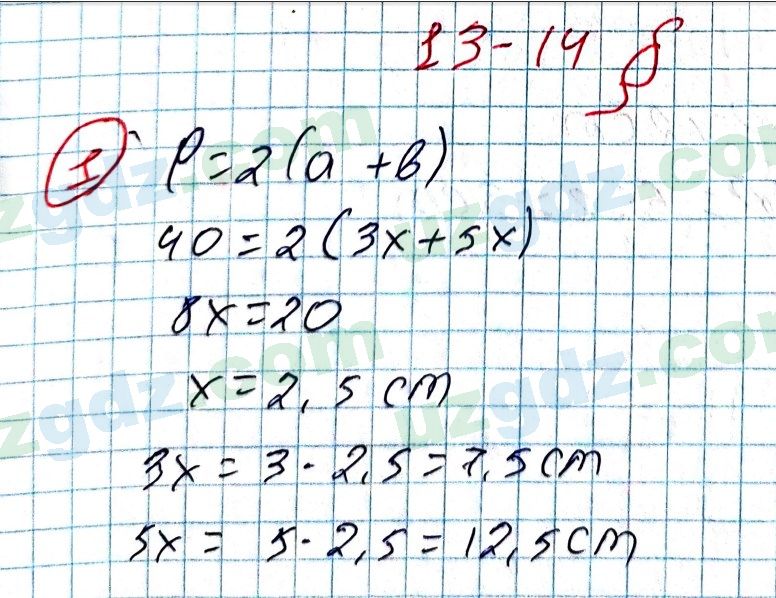 13-14 §
1 P=2(a+b)
40=2(3x+5x)
8x=20
x=2,5 cm
3x=3·2,5=7,5 cm
5x=5·2,5=12,5 cm
uzgdz.com
uzgdz.com
uzgdz.com
uzgdz.com